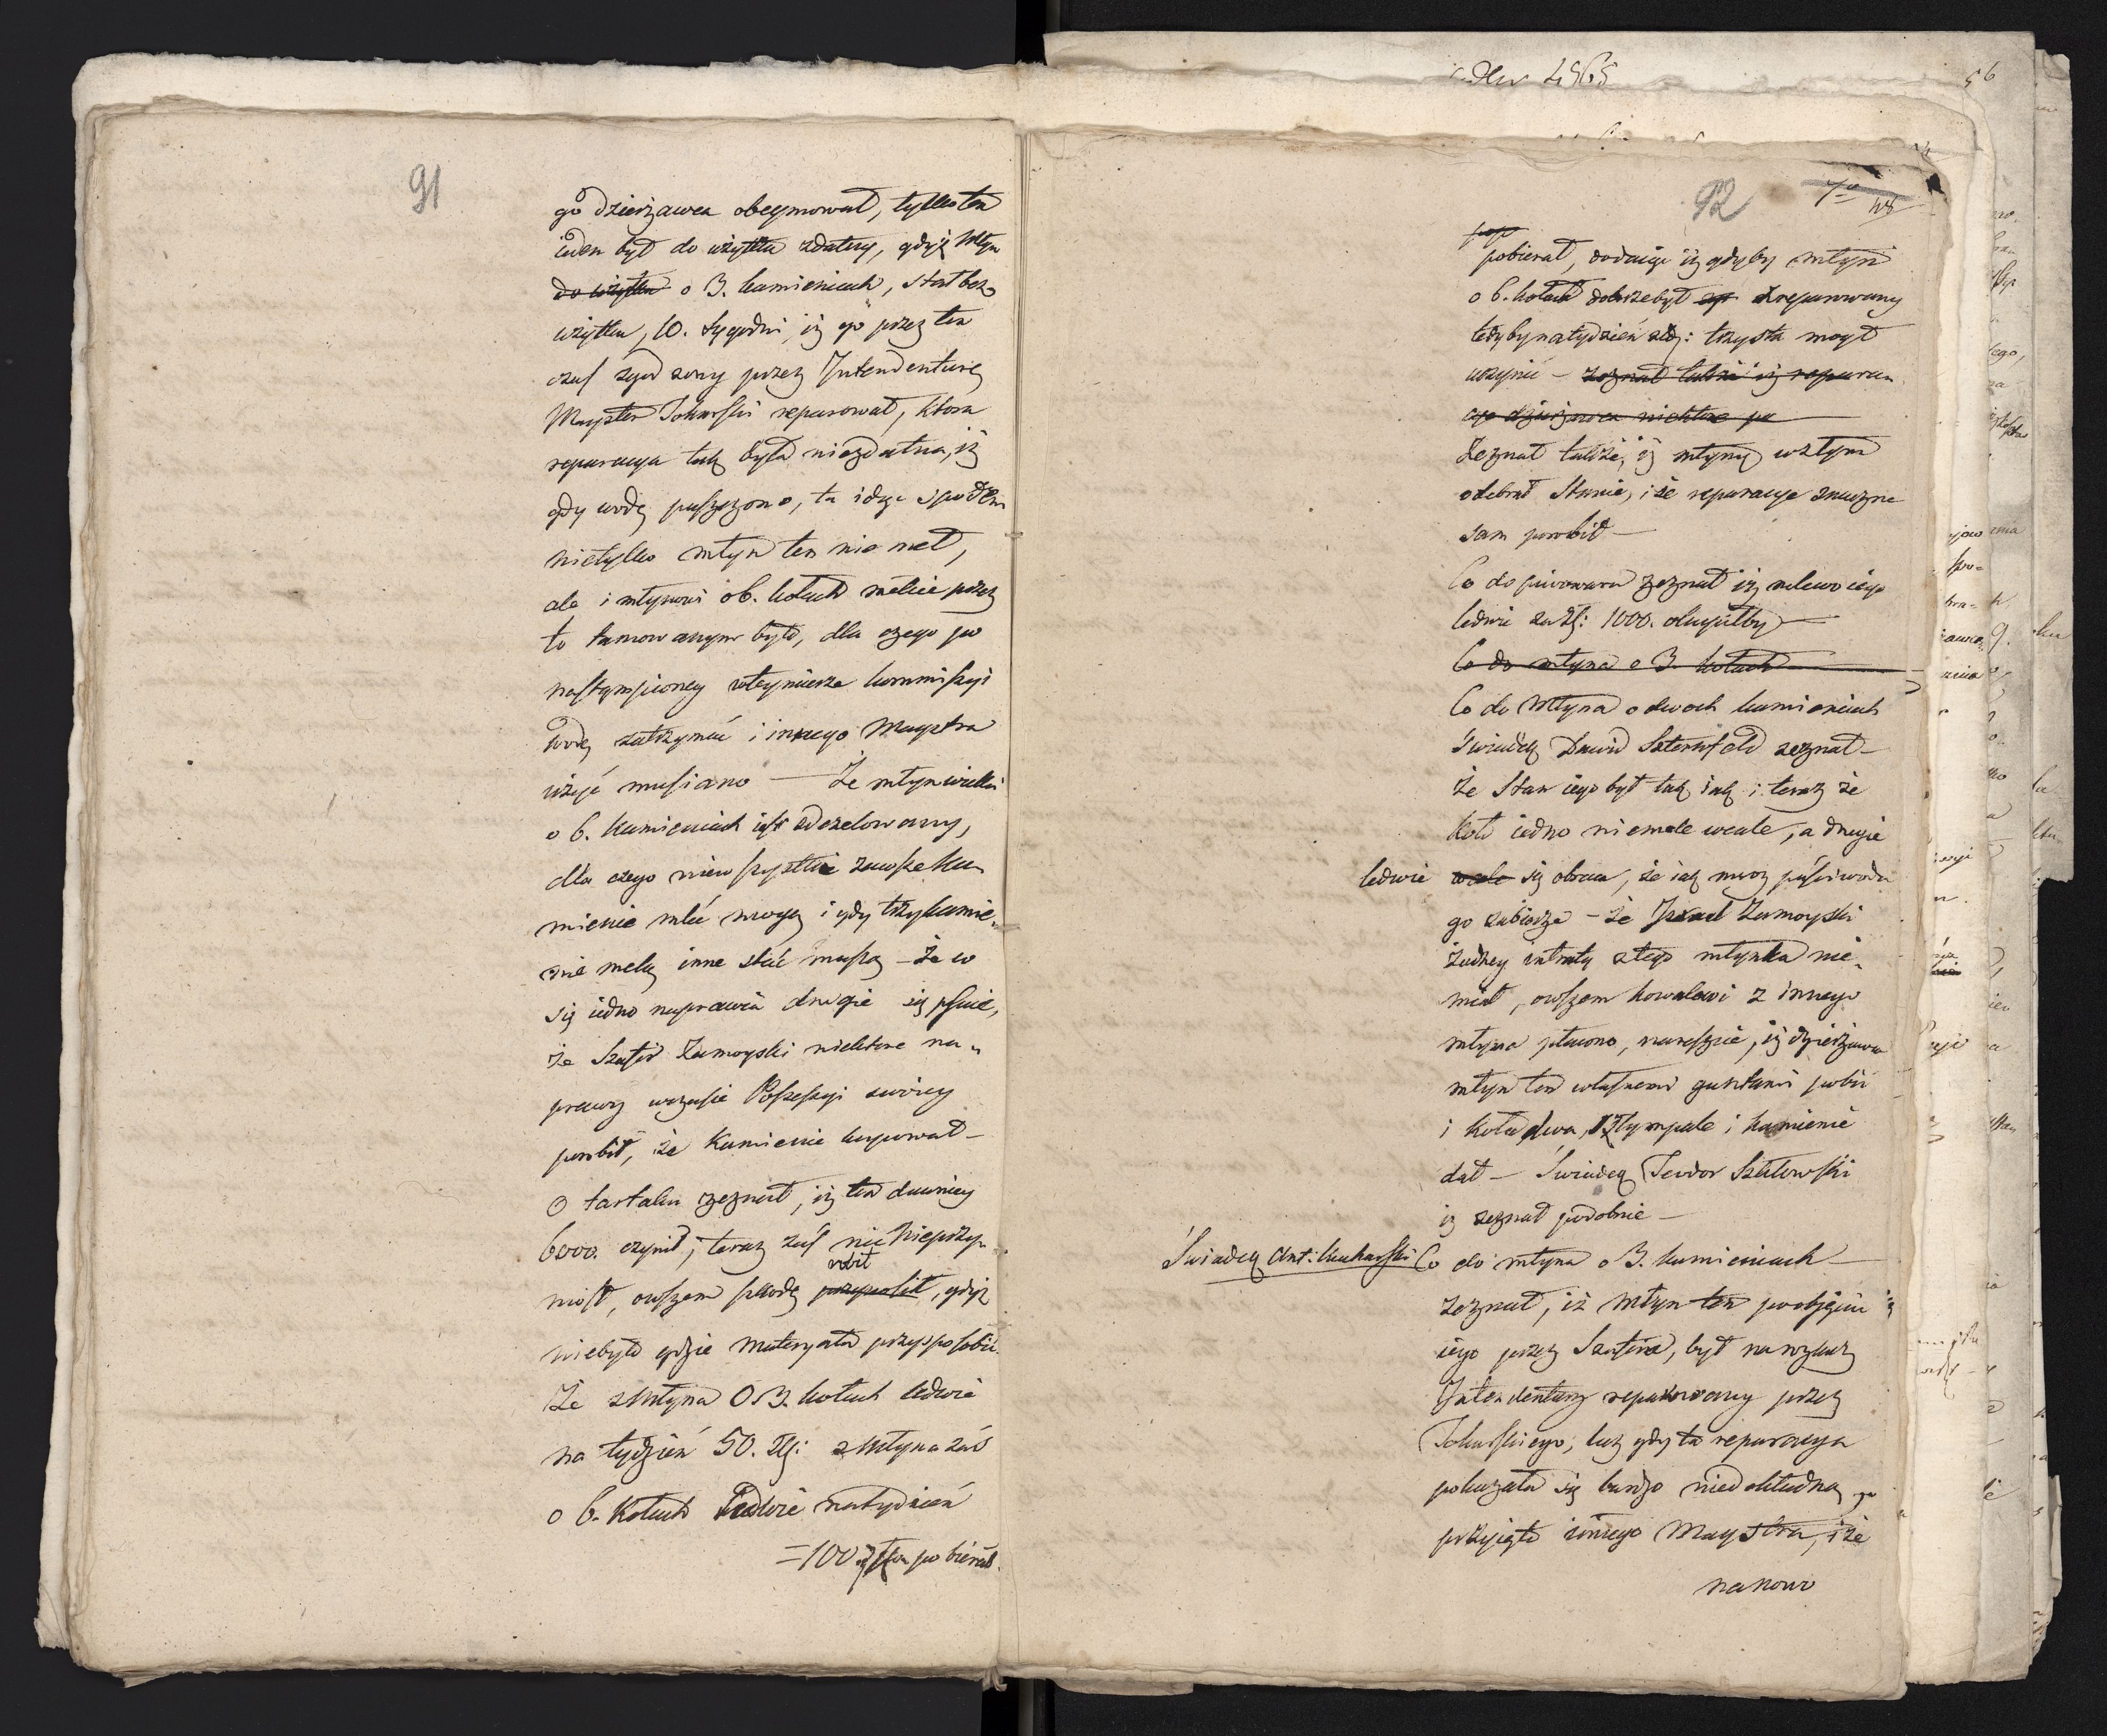 91
go dzierżawca obeymował, tylko ten
ieden był do użytku zdatny, gdyż Młyn
do użytku o 3. kamieniach, stał bez
użytku, 10. tygodni, iż go przez ten
czas zgodzony przez Intendenturę
Mayster Tokarski reparował, ktora
reparacya tak była niezdatna, iż
gdy wodę puszczono, ta idąc spodem
nietylko młyn ten nie meł,
ale i młynowi o 6. kołach mełcie przez
to tamowanym było, dla czego po
nastąpioney wteymierze kommissyi
wodę zatrzymać i innego Maystra
użyć musiano — Że młyn wielki
o 6. kamieniach iest zdezelowany,
dla czego niewszystkie zawsze ka-
mienie mleć mogą i gdy trzy kamie-
nie melą inne stać muszą — Że w
się iedno naprawia drugie się psuie,
że Szafir Zamoyski niektóre na-
prawy wczasie Possessyi swóiey
porobił, że Kamienie kupował —
O tartaku zeznał, iż ten dawniey
6000. czynił, teraz zaś nic nieprzy-
robił
niósł, owszem szkodę przynosił, gdyż
niebyło gdzie materyału przysposobić.
Że z Młyna O 3. kołach ledwie
na tydzień 50. Złł: z Młyna zaś
o 6. Kołach ledwie natydzień
=100. pobierał.
92
pobierał, dodaiąc iż gdyby młyn
o 6. kołach dobrze był zreparowany
tedyby na tydzień złł: trzysta mógł
uczynić — zeznał także iż repara-
cye dzierżawca niektóre po
Zeznał także, iż młyny wztym
odebrał Stanie, i że reparacye znaczne
sam porobił —
Co do piwowara zeznał iż mlewo iego
ledwie za Zł: 1000.
Co do młyna o 3. kołach
Co do Młyna o dwoch kamieniach
Świadek Dawid Szternfeld zeznał —
że Stan iego był tak iak i teraz że
koło iedno niemele wcale, a drugie
ledwie wcale się obraca, że iak mróz puści woda
go zabierze — że Zamoyski
żadney intraty ztego młynka nie-
miał, owszem kowalowi z innego
młyna płacono, nareszcie, iż dzierżawca
młyn ten własnemi guntami pobił
i Koła dwa, sztympale i kamienie
dał — Świadek Teodor Szatowski
iż zeznał podobnie —
Świadek Ant: Kucharski Co do młyna o 3. kamieniach —
zeznał, iż Młyn ten poobjęciu
iego przez Szafira, był narozkaz
Intendentury reparowany przez
Tokarskiego, lecz gdy ta reparacya
pokazała się bardzo niedokładną
przyięto innego Maystra, i że
nanowo